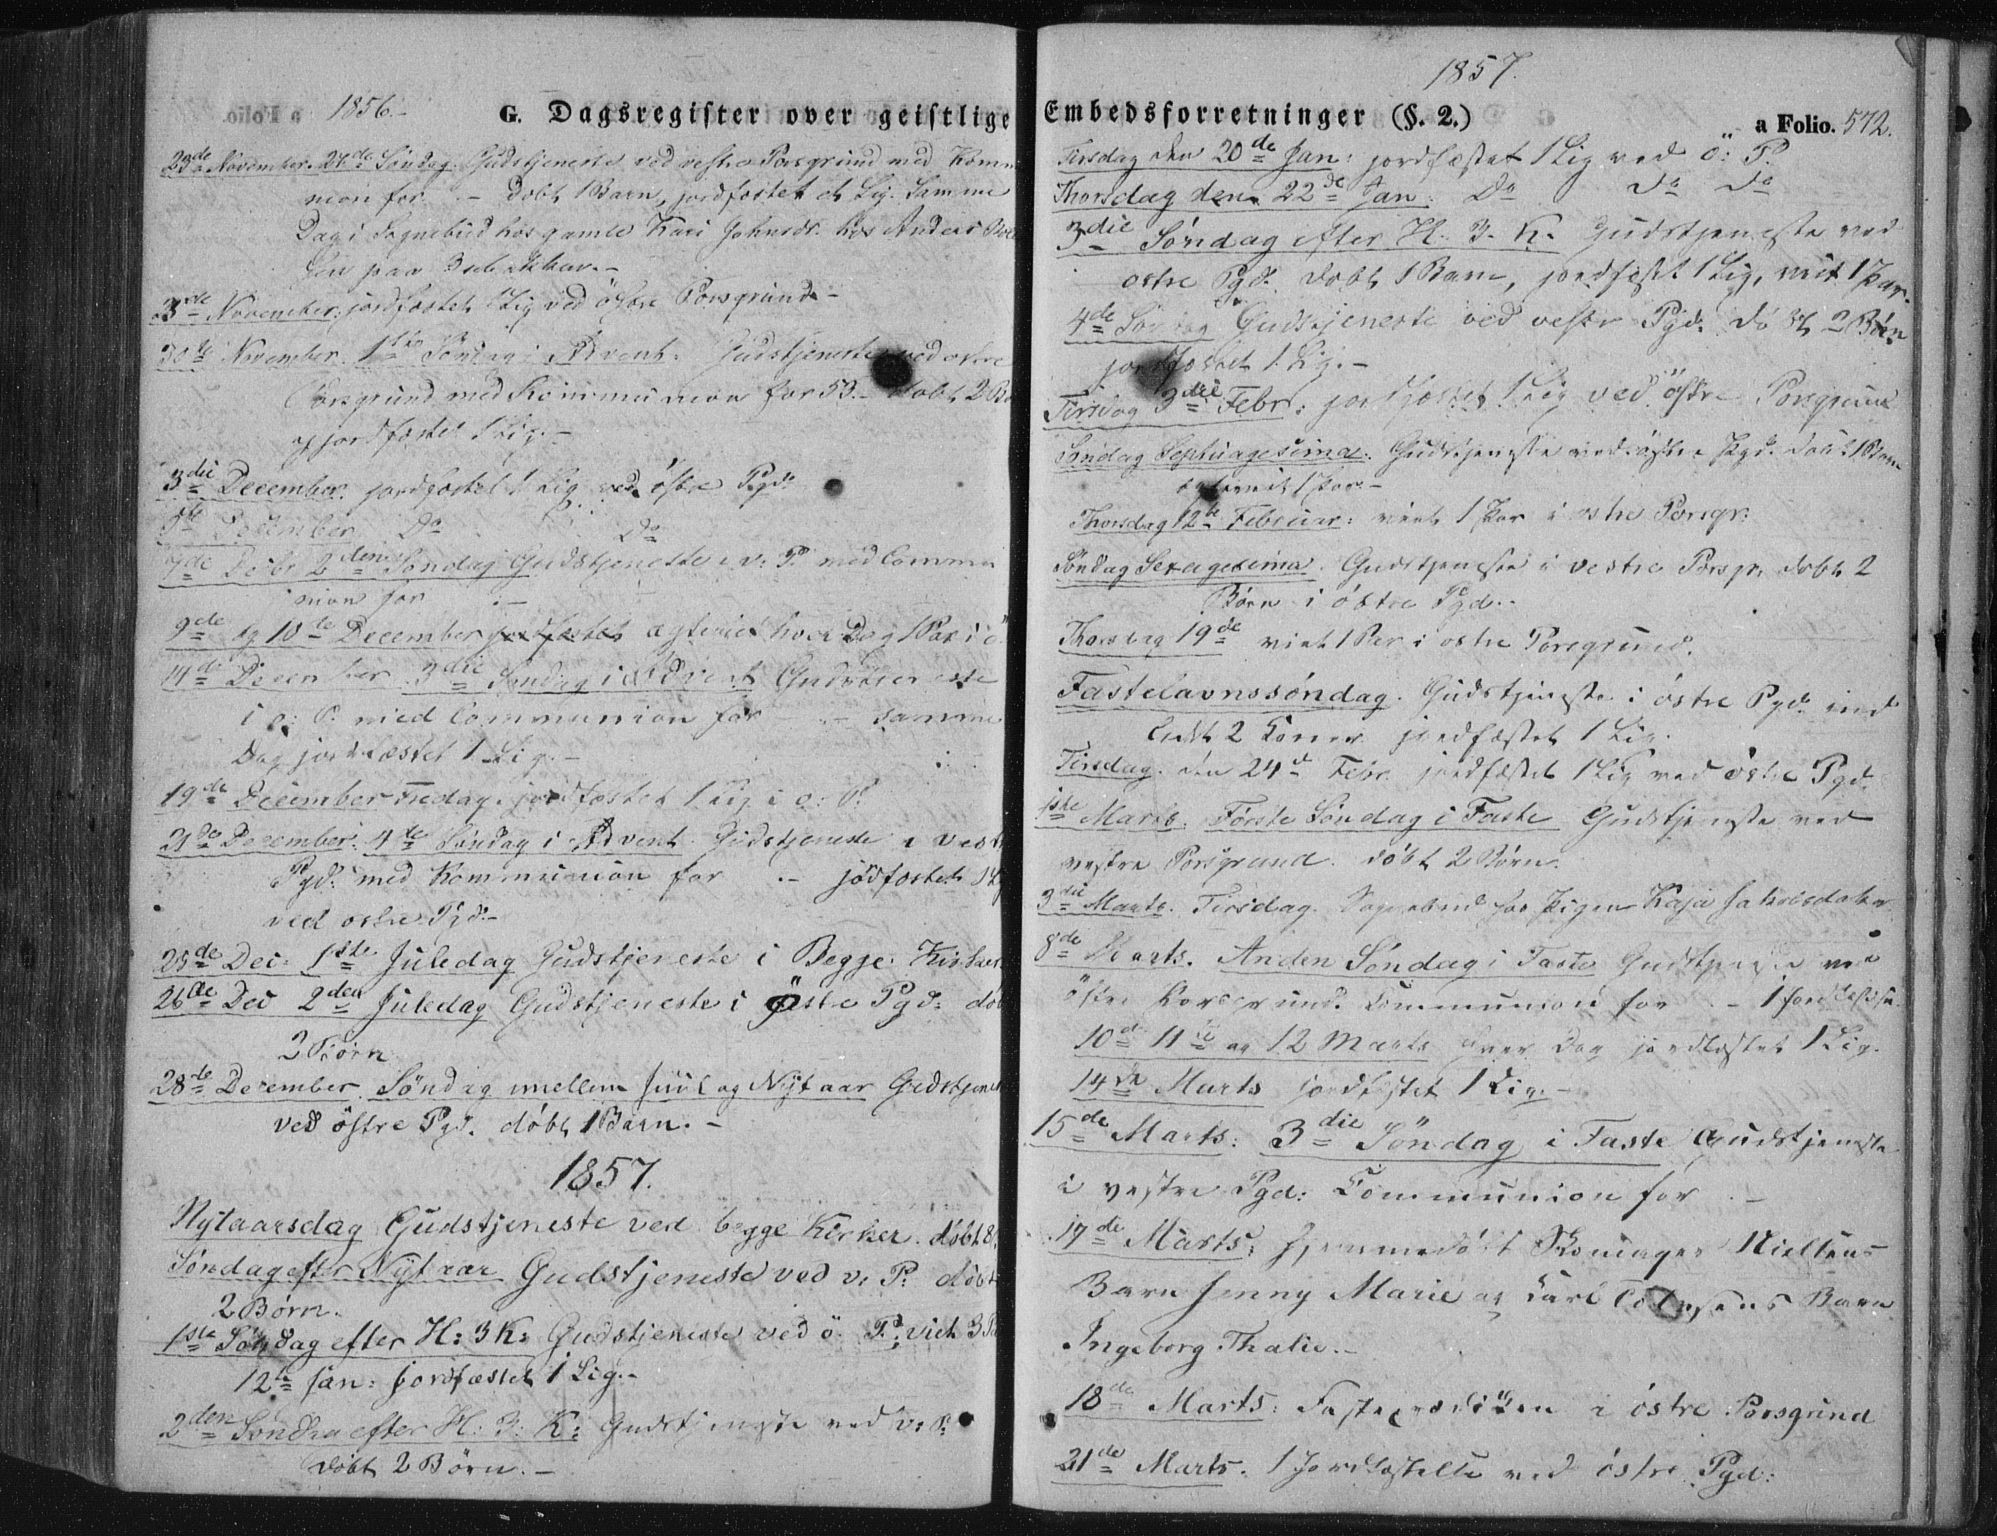 1856.-
G. Dagsregister over geistlige
23de November. 27de Søndag. Gudstjeneste ved vestre Porsgrund med Kommu
nion for - Døbt 1 Barn, jordfæstet et Lig. Samme
Dag i Sognebud hos gamle Kari Johnsdr. hos Anders
paa
November. jordfæstet 1 Lig ved østre Porsgrund -
30te November. 1ste Søndag i Advent. Gudstjeneste ved østre
Porsgrund med Kommunion for 53. - døbt 2
og jordfæstet 1 Lig. -
3die December. jordfæstet 1 Lig ved østre Pgd.
5te December Do Do
7de Decbr 2den Søndag Gudstjeneste i v: P. med Commu
nion for . -
9de og 10de December jordfæstet ægteviet hver Dag 1 Par i
14de December 3die Søndag i Advent Gudstjeneste
i ø: P. med Communion for - samme
Dag jordfæstet 1 Lig. -
19de December Fredag. jordfæstet 1 Lig i ø: P.
21de December. 4de Søndag i Advent Gudstjeneste i vest
Pgd. med Kommunion for .- jordfæstet 1
ved østre Pgd. -
25de Dec: 1ste Juledag Gudstjeneste i Begge Kirker
26de Dec 2den Juledag Gudstjeneste i Østre Pgd: døb
2 Børn
28de December. Søndag imellem Juul og Nytaar Gudstjenes
ved østre Pgd. døbt 1 Barn. -
1857.
Nytaarsdag Gudstjeneste ved begge Kirker. døbt 8
Søndag efter Nytaar Gudstjeneste ved v: P: døbt
2 Børn.
1ste Søndag efter H: 3 K: Gudstjeneste ved ø. P. viet 3 Pa
12te Jan: jordfæstet 1 Lig. -
2den Søndag efter H: 3: K: Gudstjeneste ved v: P:
døbt 2 Børn. -
1857.
Embedsforretninger (§. 2.)
a Folio. 572.
Tirsdag den 20de Jan: jordfæstet 1 Lig ved ö: P.
Thorsdag den 22de Jan: Do Do Do
3die Søndag efter H. 3. K. Gudstjeneste ved
østre Pgd. døbt 1 Barn, jordfæstet 1 Lig, viet 1 Par.
4de Søndag Gudstjeneste ved vestr Pgd. døbt 2 Børn
jordfæstet 1 Lig. -
Tirsdag 3die Febr: jordfæstet 1 Lig ved östre Porsgrund
Søndag Septuagesima. Gudstjeneste ved østre Pgd. døbt 1 Barn
1 Par -
Thorsdag 12te Februar: viet 1 Par i østre Porsgr.
Søndag Sexagesima. Gudstjeneste i vestre Porsgr. døbt 2
Børn i østre Pgd. -
Thorsdag 19de viet 1 Par i østre Porsgrund.
Fastelavnssøndag. Gudstjeneste i østre Pgd.
2 jordfæstet 1 Lig.
Tirsdag. den 24de Febr jordfæstet 1 Lig ved østre Pgd.
1ste Marts. Første Søndag i Faste Gudstjeneste ved
vestre Porsgrund. døbt 2 Børn.
3die Marts. Tirsdag. Sognebud hos Pigen Kaja Jakobsdatter
8de Marts. Anden Søndag i Faste Gudstjeneste ved
östre Porsgrund. Communion for . - 1
10de 11te og 12 Marts hver Dag jordfæstet 1 Lig.
14de Marts jordfæstet 1 Lig. -
15de Marts: 3die Søndag i Faste Gudstjeneste
i vestre Pgd: Communion for . -
17de Marts: hjemmedøbt Skomager Nielsens
Barn Jenny Marie og Carl Barn
Ingeborg Thalie. -
18de Marts: Fasteprædiken i østre Porsgrund
21de Marts. 1 Jordfæstelse ved østre Pgd: